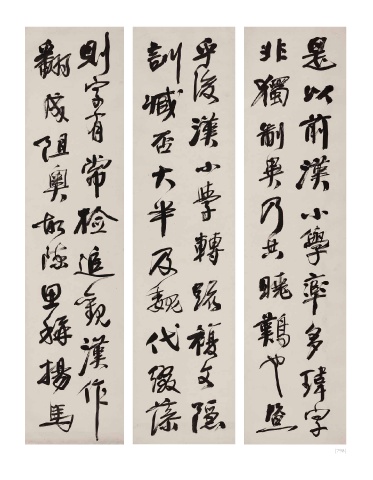 是以前漢小學率多瑋字
非獨制異乃共曉難也暨
乎後漢小學轉疏複文隱
訓臧否大半及魏代綴藻
則字有常檢追觀漢作
翻成阻奧故陳思稱揚馬